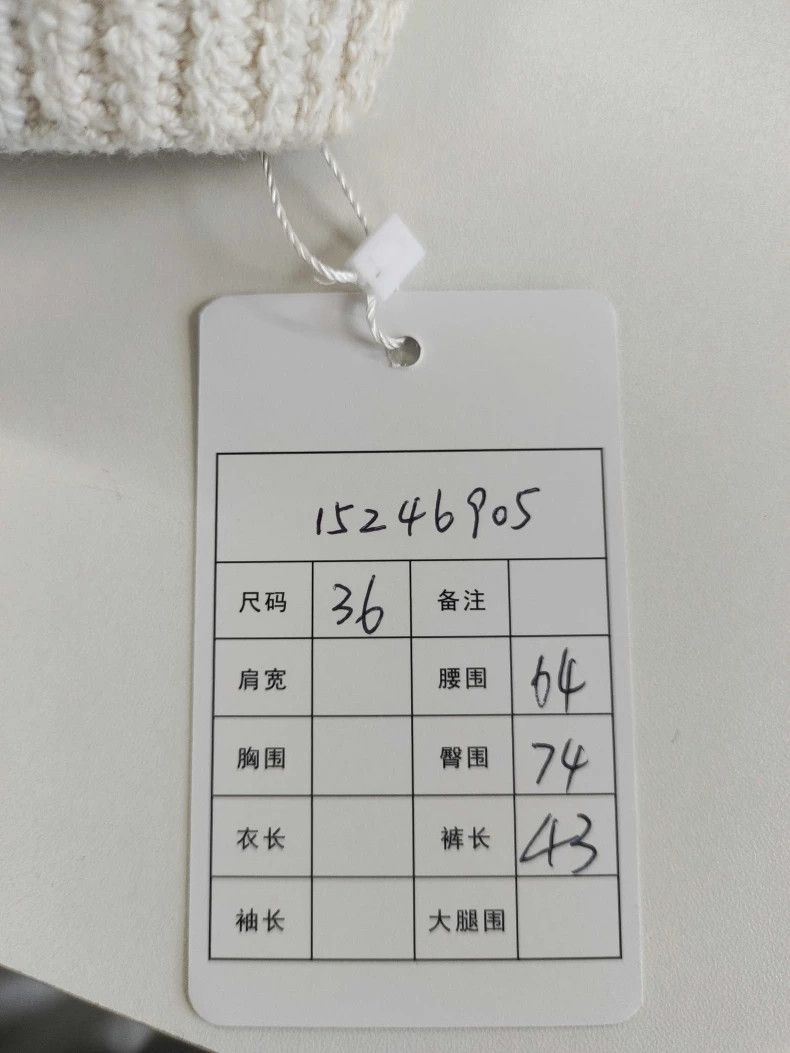 15246905
尺码 36 备注
肩宽 腰围 64
胸围 臀围 74
衣长 裤长 43
袖长 大腿围